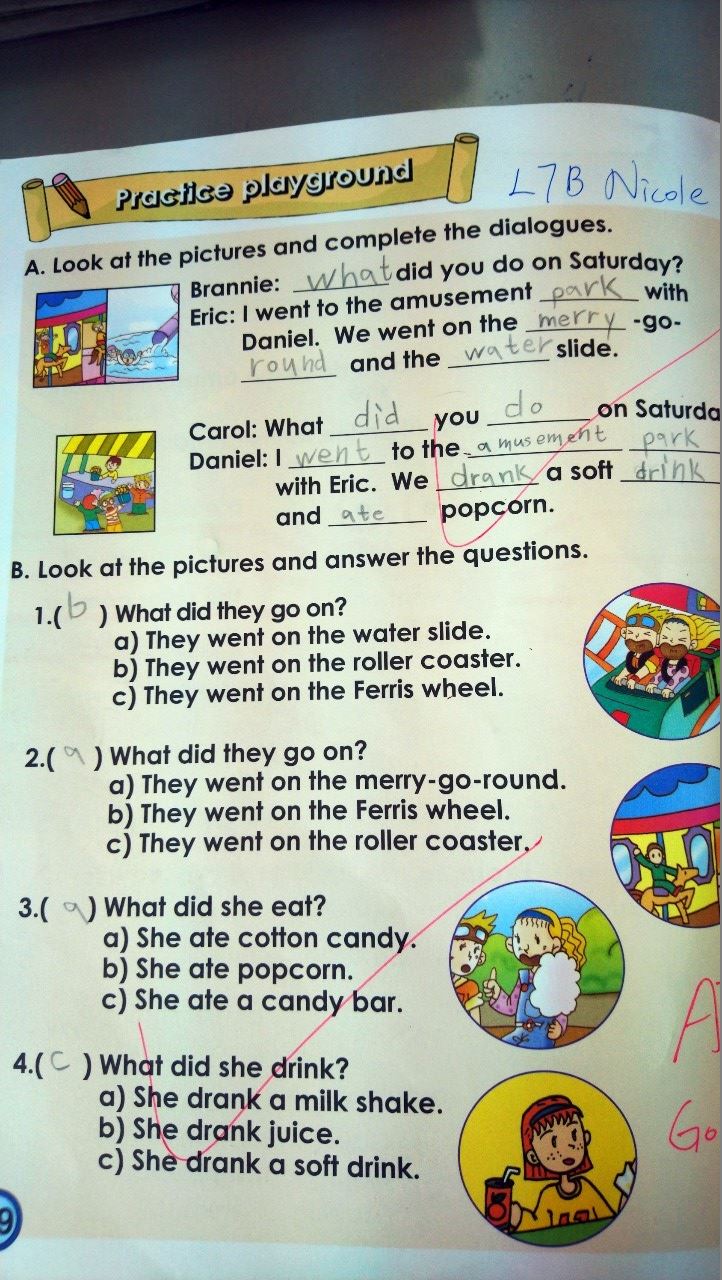 Practice playground
L7B Nicole
A. Look at the pictures and complete the dialogues.
Brannie: what did you do on Saturday?
Eric: I went to the amusement park with
Daniel. We went on the merry -go-
round and the water slide.
Carol: What did you do on Saturda
Daniel: I went to the amusement park
with Eric. We drank a soft drink
and ate popcorn.
B. Look at the pictures and answer the questions.
1.( b ) What did they go on?
a) They went on the water slide.
b) They went on the roller coaster.
c) They went on the Ferris wheel.
2.( a ) What did they go on?
a) They went on the merry-go-round.
b) They went on the Ferris wheel.
c) They went on the roller coaster.
3.( a ) What did she eat?
a) She ate cotton candy.
b) She ate popcorn.
c) She ate a candy bar.
4.( c ) What did she drink?
a) She drank a milk shake.
b) She drank juice.
c) She drank a soft drink.
A
Go
9